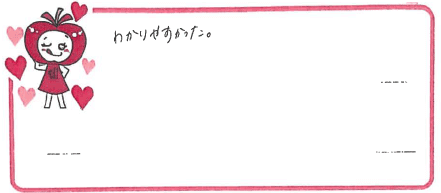 わかりやすかった。